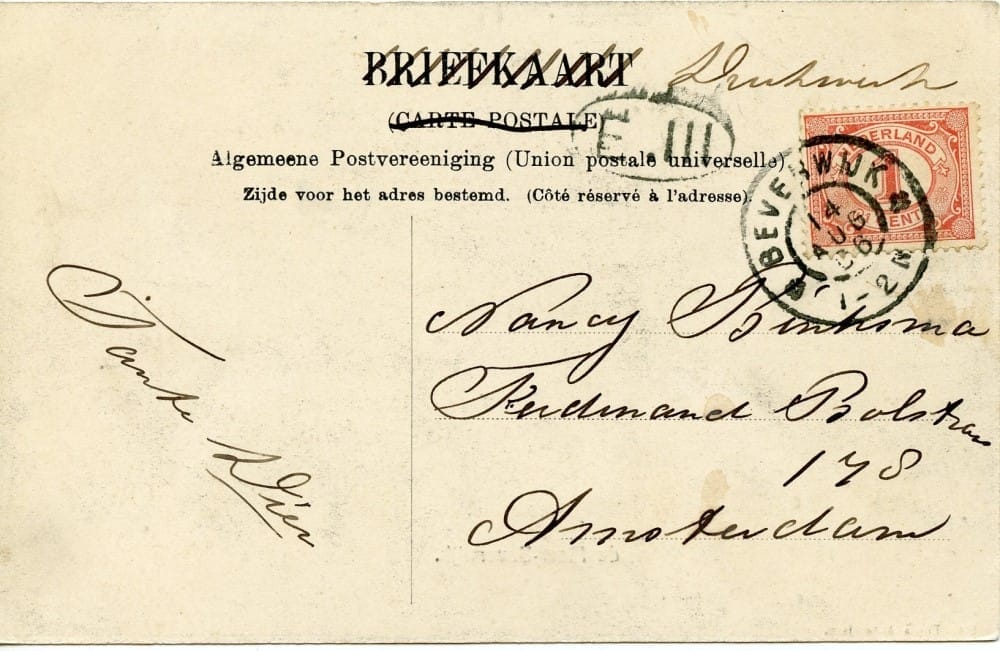 BRIEFKAART Drukwerk
(CARTE POSTALE)
III
Algemeene Postvereeniging (Union postale universelle)
Zijde voor het adres bestemd. (Côté réservé à l'adresse).
NEDERLAND
1
CENT
BEVERWIJK
14 AUG 06
1-2N
Nancy Binksma
Ferdinand Bolstraa
178
Amsterdam
Tante Dien